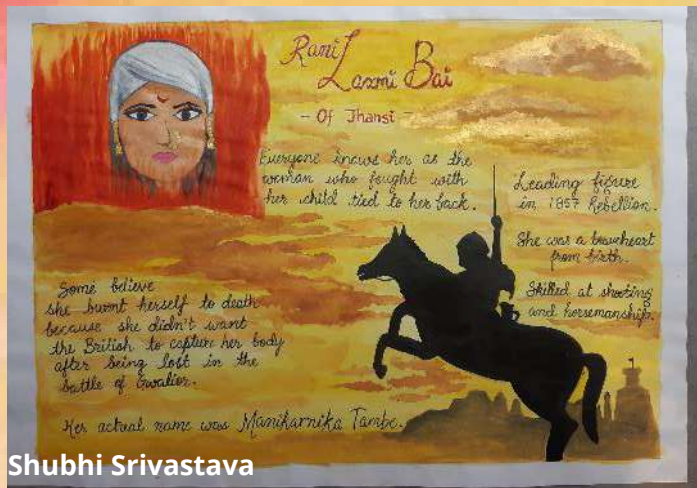 Rani Laxmi Bai
- Of Jhansi -
Everyone knows her as the
woman who fought with
her child tied to her back.
Leading figure
in 1857 Rebellion.
She was a braveheart
from birth.
Skilled at shooting
and horsemanship.
Some believe
she burnt herself to death
because she didn't want
the British to capture her body
after being lost in the
battle of Gwalior.
Her actual name was Manikarnika Tambe.
Shubhi Srivastava